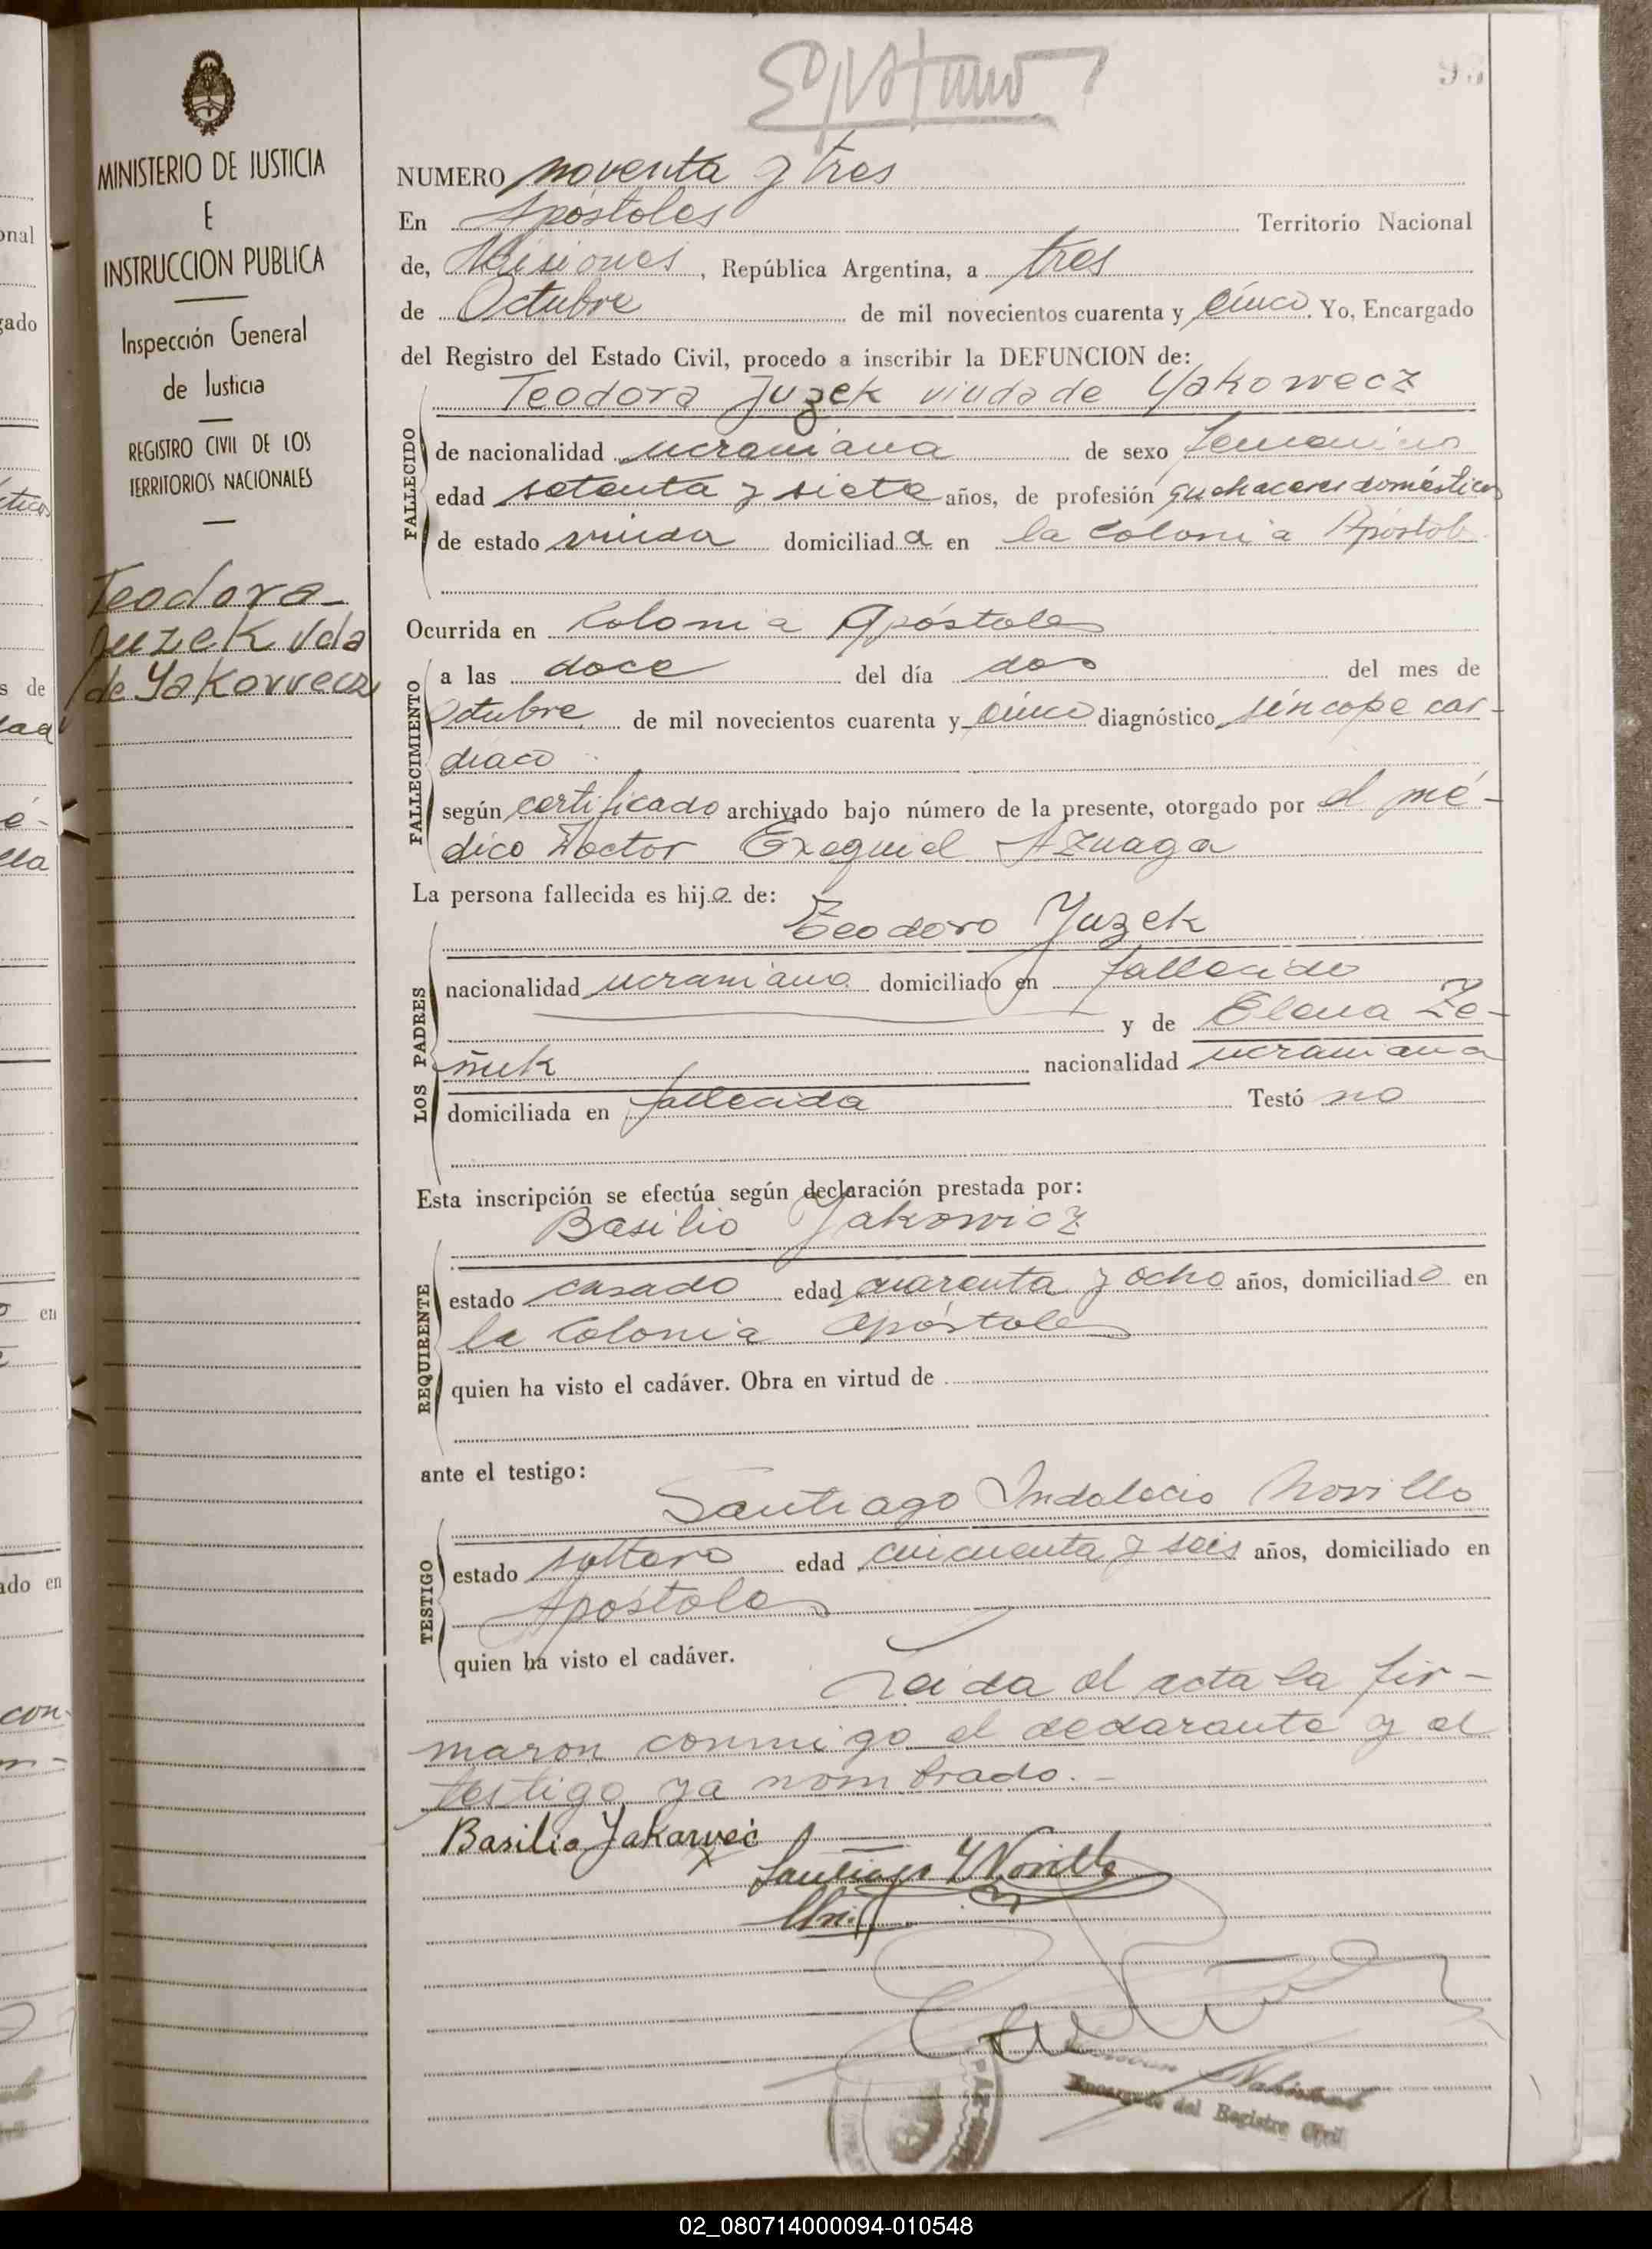 93
MINISTERIO DE JUSTICIA
E
INSTRUCCION PUBLICA
Inspección General
de Justicia
REGISTRO CIVIL DE LOS
TERRITORIOS NACIONALES
Teodora
Juzek vda
de Yakowecz
NUMERO noventa y tres
En Apóstoles Territorio Nacional
de, Misiones, República Argentina, a tres
de Octubre de mil novecientos cuarenta y cinco. Yo, Encargado
del Registro del Estado Civil, procedo a inscribir la DEFUNCION de:
Teodora Juzek viuda de Yakowecz
FALLECIDO
de nacionalidad ucraniana de sexo femenino
edad setenta y siete años, de profesión quehaceres domésticos
de estado viuda domiciliada en la Colonia Apóstol
Ocurrida en Colonia Apóstoles
FALLECIMIENTO
a las doce del día dos del mes de
Octubre de mil novecientos cuarenta y cinco diagnóstico síncope car-
diaco
según certificado archivado bajo número de la presente, otorgado por el mé-
dico Doctor Exequiel Azuaga
La persona fallecida es hija de:
LOS PADRES
Teodoro Juzek
nacionalidad ucraniana domiciliado en fallecido
y de Elena Ze-
ñuk nacionalidad ucraniana
domiciliada en fallecida Testó no
Esta inscripción se efectúa según declaración prestada por:
REQUIRENTE
Basilio Yakowicz
estado casado edad cuarenta y ocho años, domiciliado en
la Colonia Apóstoles
quien ha visto el cadáver. Obra en virtud de
ante el testigo:
TESTIGO
Santiago Indalecio Novillo
estado soltero edad cincuenta y seis años, domiciliado en
Apóstoles
quien ha visto el cadáver.
Leida el acta la fir-
maron conmigo el declarante y el
testigo ya nombrado.-
Basilio Yakowec
Santiago I Novillo
Encargado del Registro Civil
02_080714000094-010548